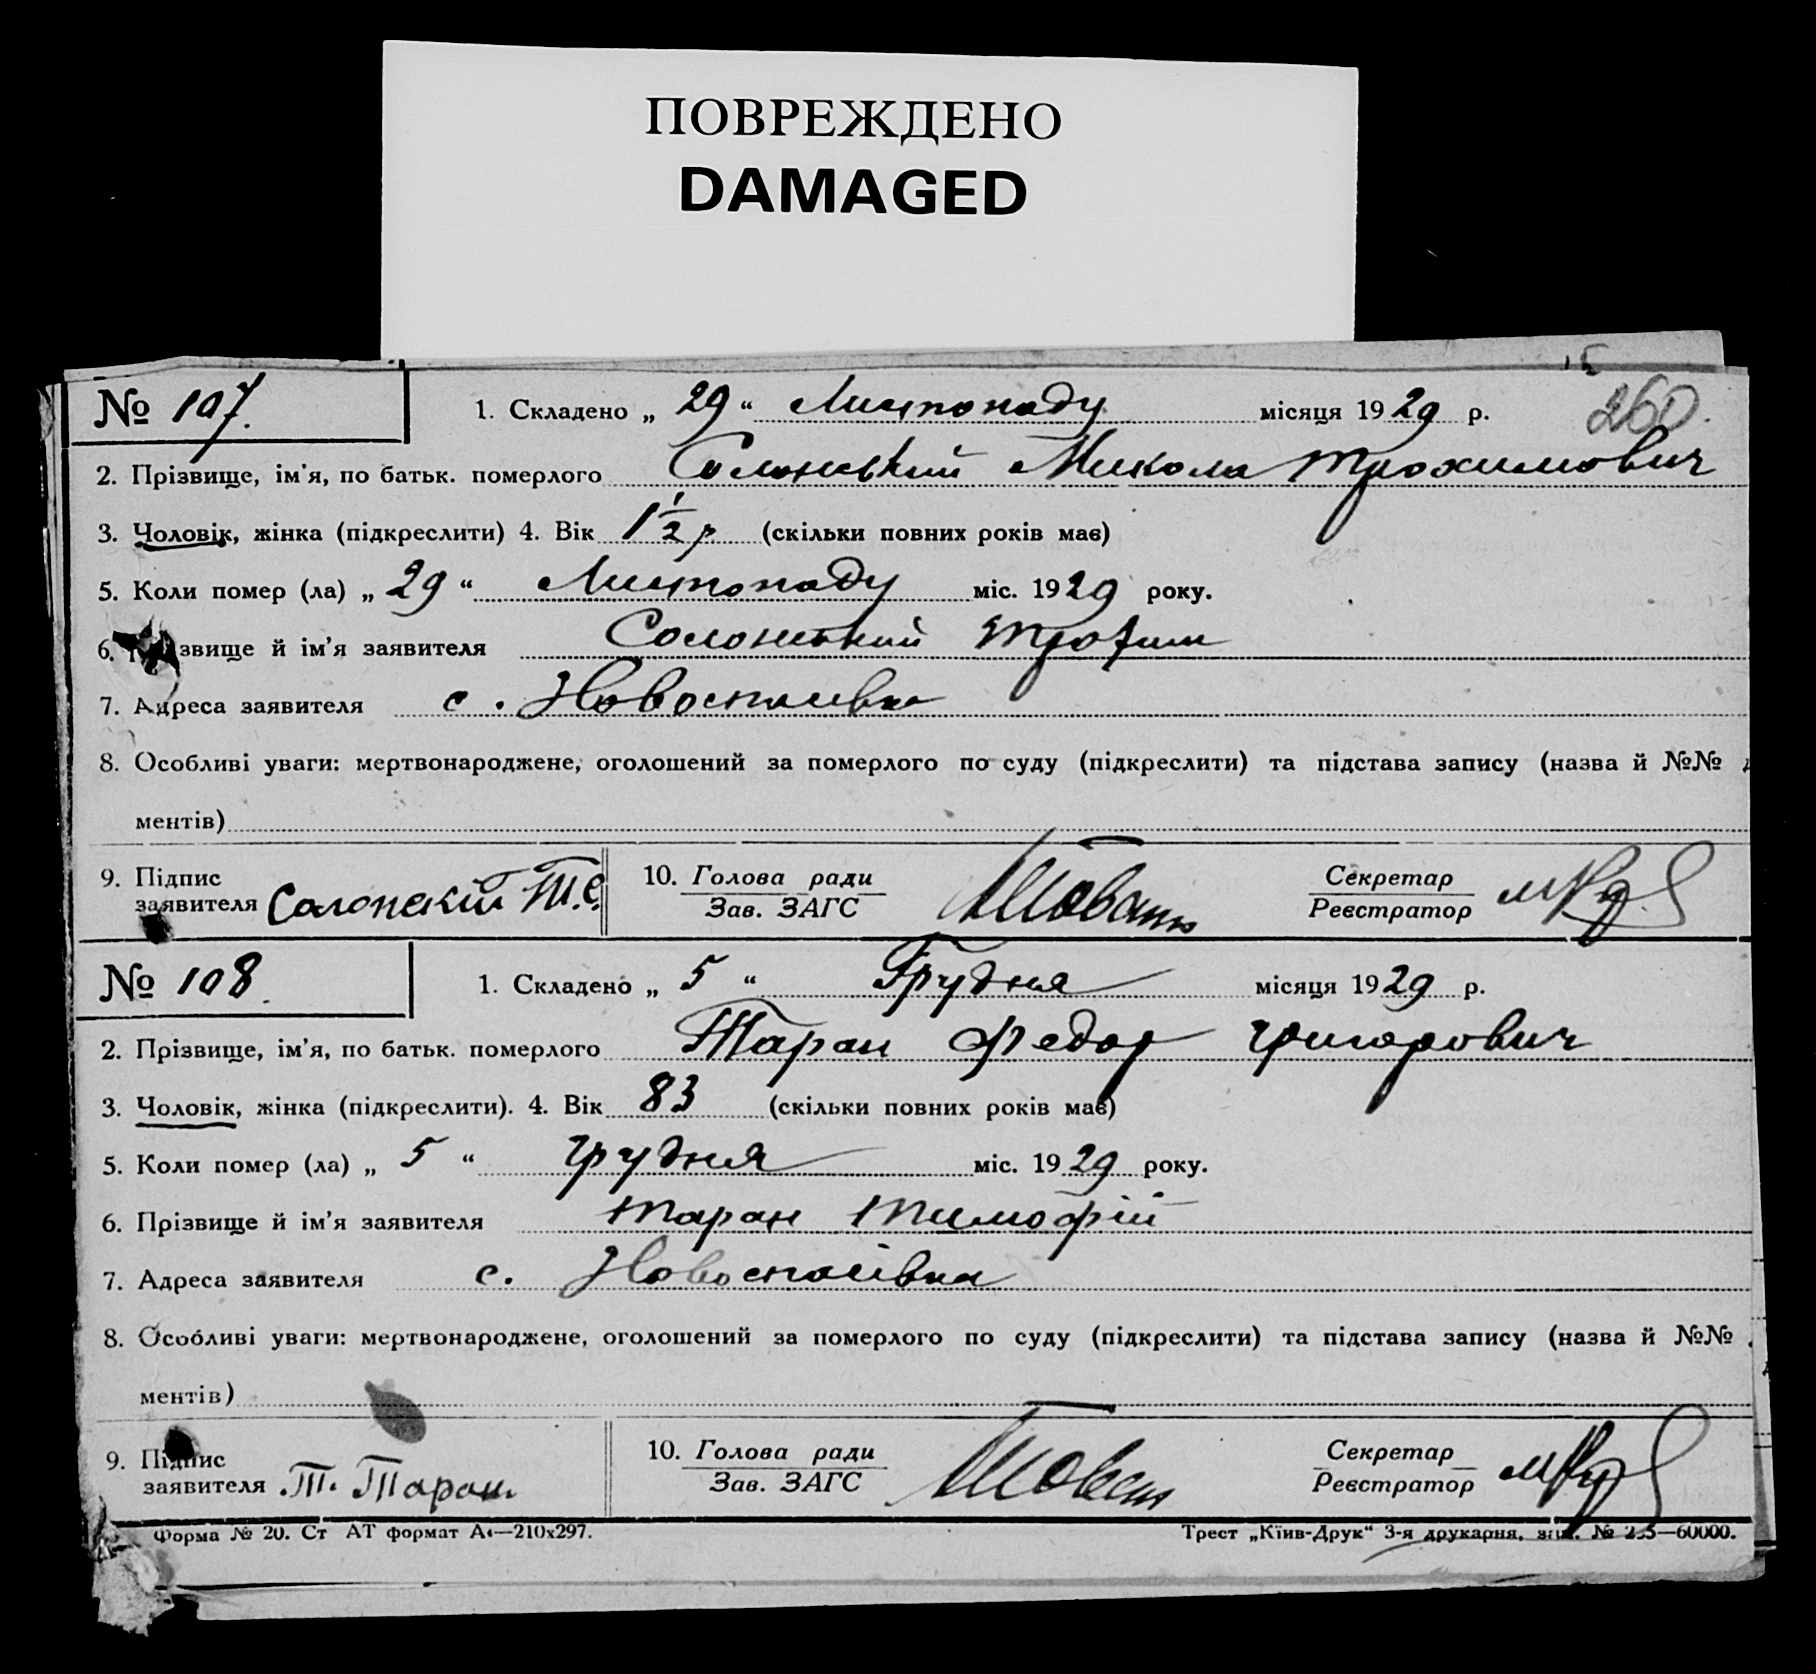 ПОВРЕЖДЕНО
DAMAGED
№ 107. 1. Складено „ 29 “ Листопаду місяця 1929 р. 260.
2. Прізвище, ім'я, по батьк. померлого Солонський Микола Трохимович
3. Чоловік, жінка (підкреслити) 4. Вік 1½ р (скільки повних років має)
5. Коли помер (ла) „ 29 “ Листопаду міс. 1929 року.
6. звище й ім'я заявителя Солонський Трофим
7. Адреса заявителя с. Новоспаівка
8. Особливі уваги: мертвонароджене, оголошений за померлого по суду (підкреслити) та підстава запису (назва й №№
ментів)
9. Підпис 10. Голова ради Секретар
заявителя Солонскій Т.С. Зав. ЗАГС Реєстратор
№ 108. 1. Складено „ 5 “ Грудня місяця 1929 р.
2. Прізвище, ім'я, по батьк. померлого Таран Федор Григорович
3. Чоловік, жінка (підкреслити). 4. Вік 83 (скільки повних років має)
5. Коли помер (ла) „ 5 “ грудня міс. 1929 року.
6. Прізвище й ім'я заявителя Таран Тимофій
7. Адреса заявителя с. Новоспаівка
8. Особливі уваги: мертвонароджене, оголошений за померлого по суду (підкреслити) та підстава запису (назва й №№
ментів)
9. Підпис 10. Голова ради Секретар
заявителя Т. Таран Зав. ЗАГС Реєстратор
Форма № 20. Ст АТ формат А4—210х297. Трест „Київ-Друк“ 3-я друкарня, —60000.